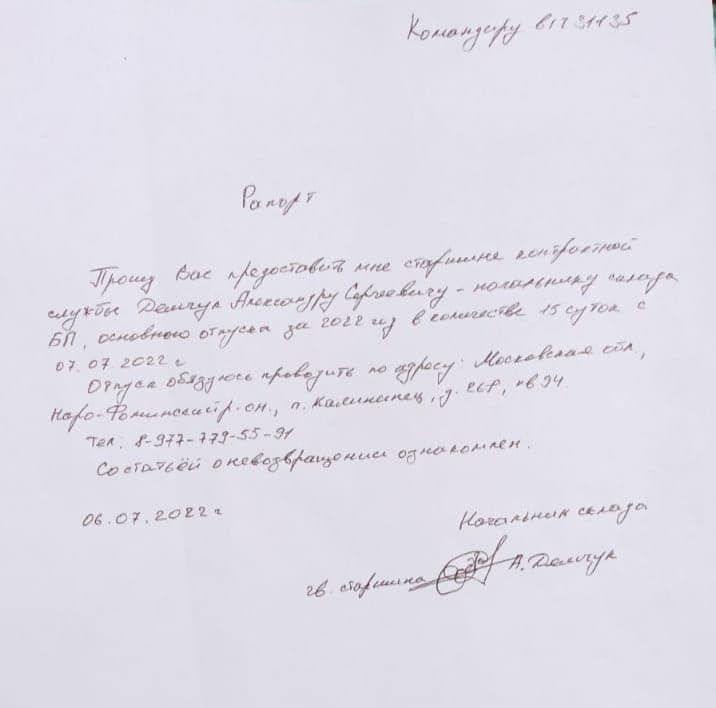 Командиру в/ч 31135
Рапорт
Прошу Вас предоставить мне старшине контрактной
службы Демчук Александру Сергеевичу - начальнику склада
БП, основного отпуска за 2022 год в количестве 15 суток с
07.07.2022 г
Отпуск обязуюсь проводить по адресу: Московская обл.,
Наро-Фоминский р-он., п. Калининец, д. 268, кв 94.
Тел: 8-977-779-55-91
Со статьёй о невозвращении ознакомлен.
06.07.2022 г
Начальник склада
гв. старшина А. Демчук